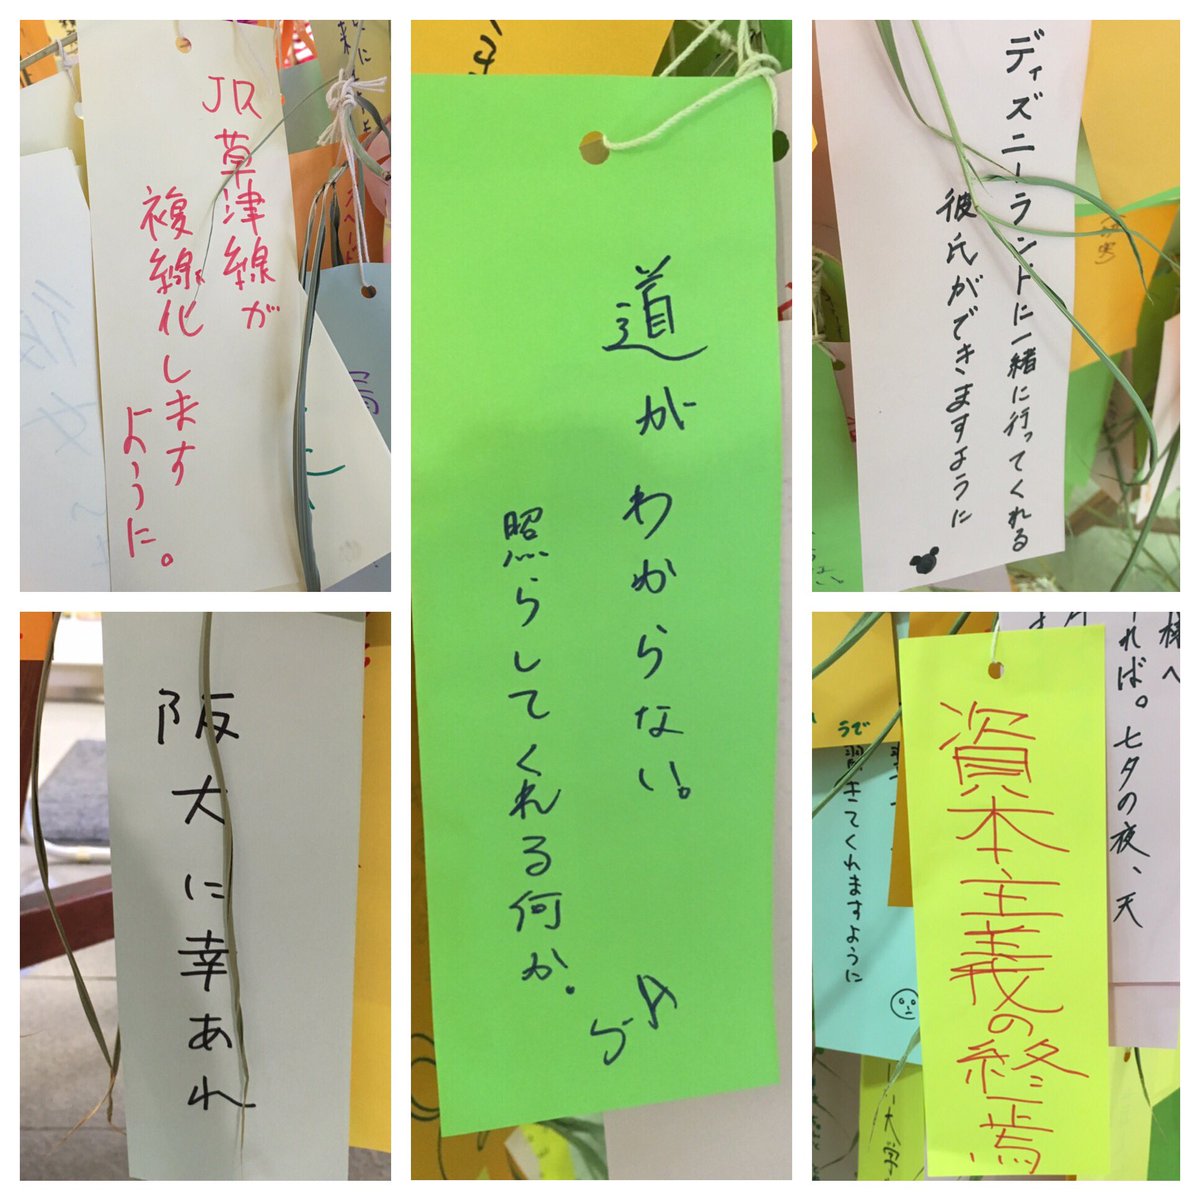 JR草津線が
複線化します
ように。
道がわからない。
照らしてくれる何か。
ディズニーランドに一緒に行ってくれる
彼氏ができますように
阪大に幸あれ
資本主義の終焉
様へ
れば。七夕の夜、天
うで
きてくれますように